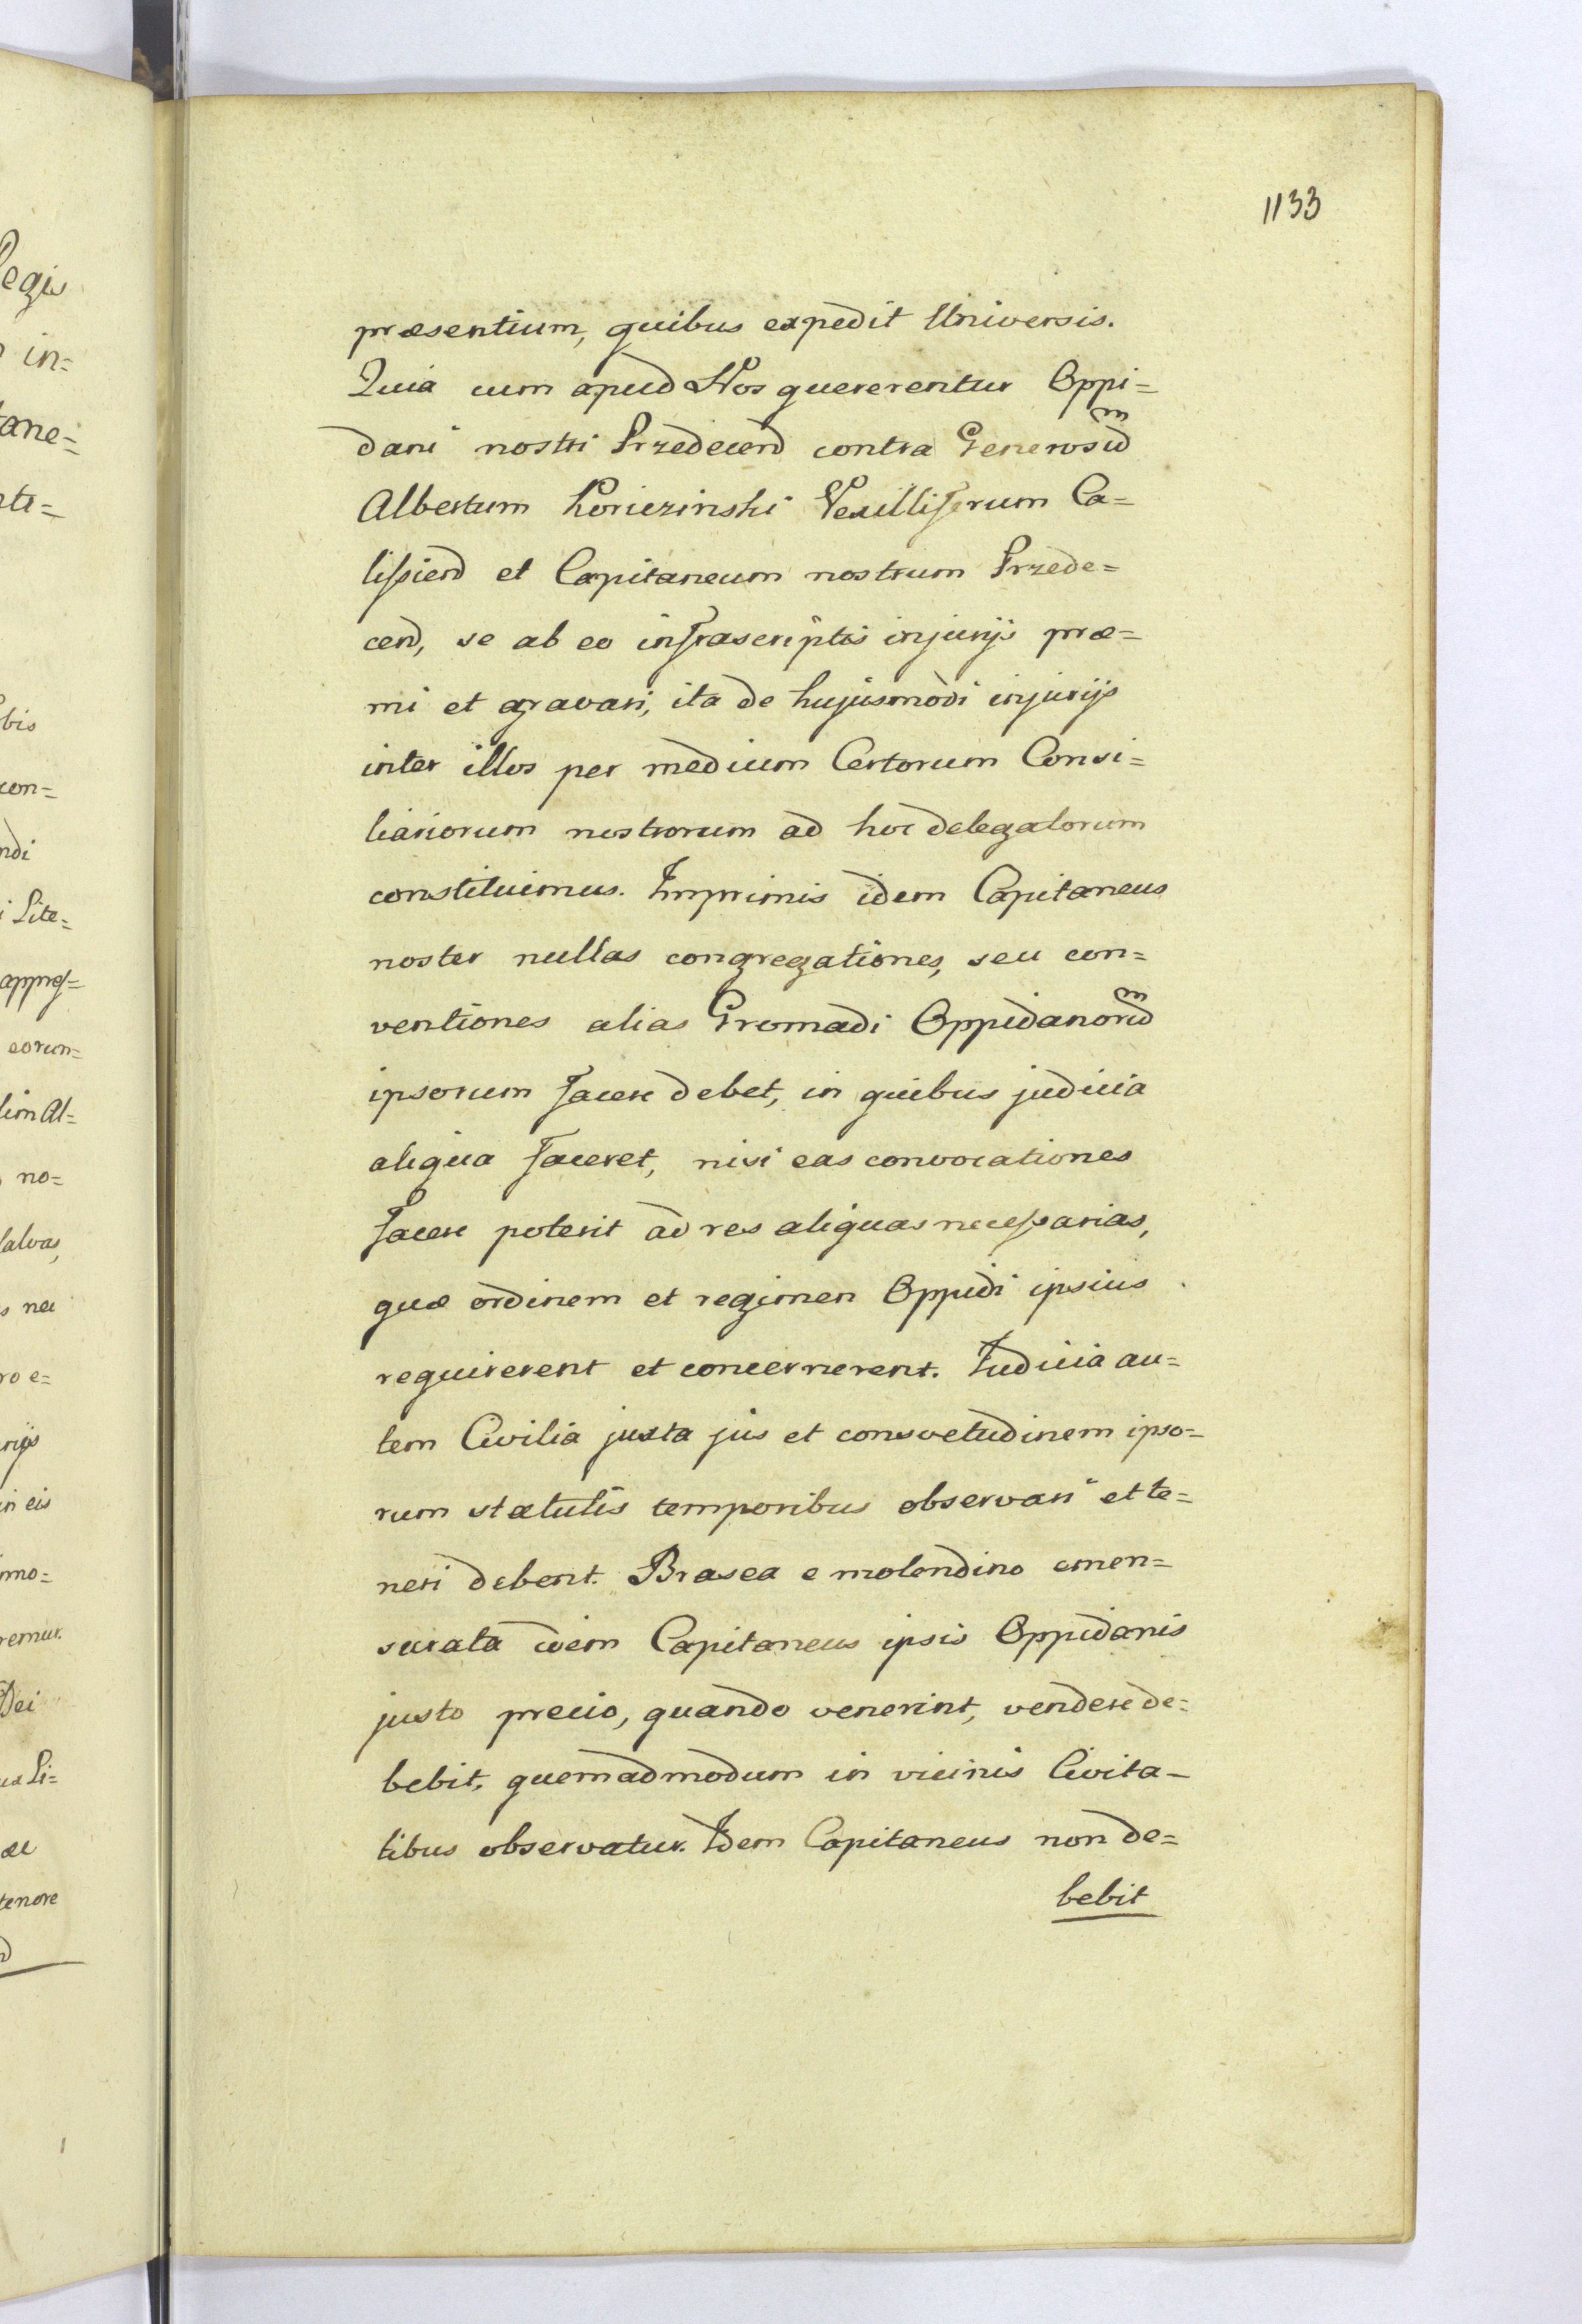 1133
præsentium, quibus expedit Universis.
Quia cum apud Nos quererentur Oppi=
dani nostri Przedecen̄ contra Generosūm
Albertum Koriczinski Vexilliferum Ca=
lisſien̄ et Capitaneum nostrum Przede=
cen̄, se ab eo infrascriptis injurijs præ=
mi et gravari, ita de hujusmodi injurijs
inter illos per medium Certorum Consi=
liariorum nostrorum ad hoc delegatorum
constituimus. Imprimis idem Capitaneus
noster nullas congregationes, seu con=
ventiones alias Gromadi Oppidanorūm
ipsorum facere debet, in quibus judicia
aliqua faceret, nisi eas convocationes
facere poterit ad res aliquas necesſarias,
quæ ordinem et regimen Oppidi ipsius
requirerent et concernerent. Judicia au=
tem Civilia juxta jus et consvetudinem ipso=
rum statutis temporibus observari et te=
neri debent. Brasea e molendino emen=
surata idem Capitaneus ipsis Oppidanis
justo precio, quando venerint, vendere de=
bebit, quemadmodum in vicinis Civita-
tibus observatur. Idem Capitaneus non de=
bebit
Regis
in=
tane=
bis
con=
ndi
i Lite=
eorun=
lim Al=
no=
salvas,
s nec
ro e=
in eis
imo=
remur.
Dei
Li=
tenore